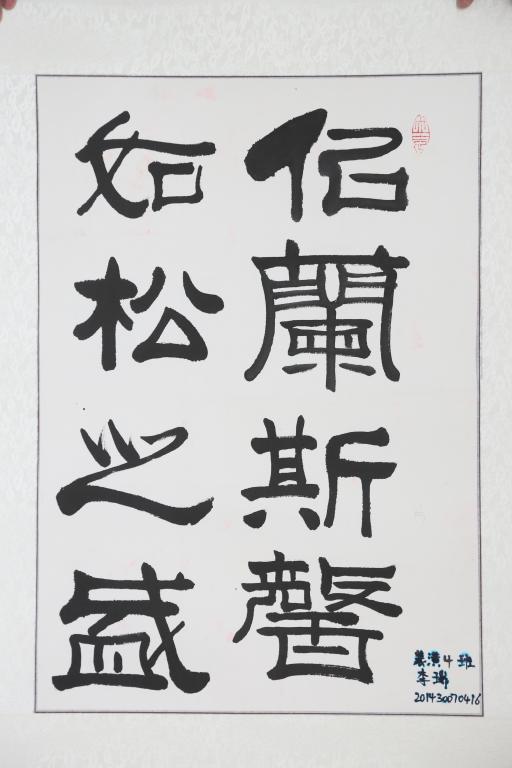 佀蘭斯馨
如松之盛
潢4班
李瑞
201430070416